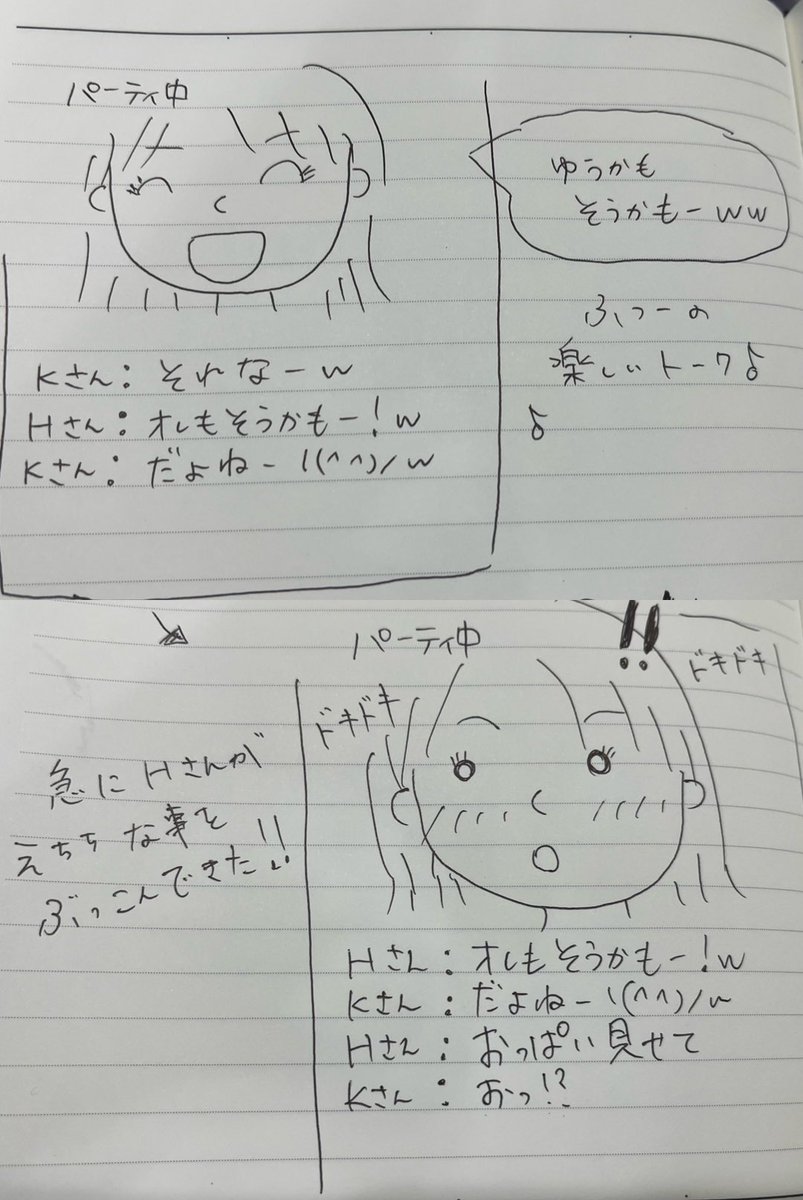 パーティ中
ゆうかも
そうかもーww
ふつーの
楽しいトーク♪
♪
Kさん：それなーw
Hさん：オレもそうかもー!w
Kさん：だよねー\(^^)/w
パーティ中
!!
ドキドキ
ドキドキ
急にHさんが
えちちな事を
ぶっこんできた!!
Hさん：オレもそうかもー!w
Kさん：だよねー\(^^)/w
Hさん：おっぱい見せて
Kさん：おっ!?